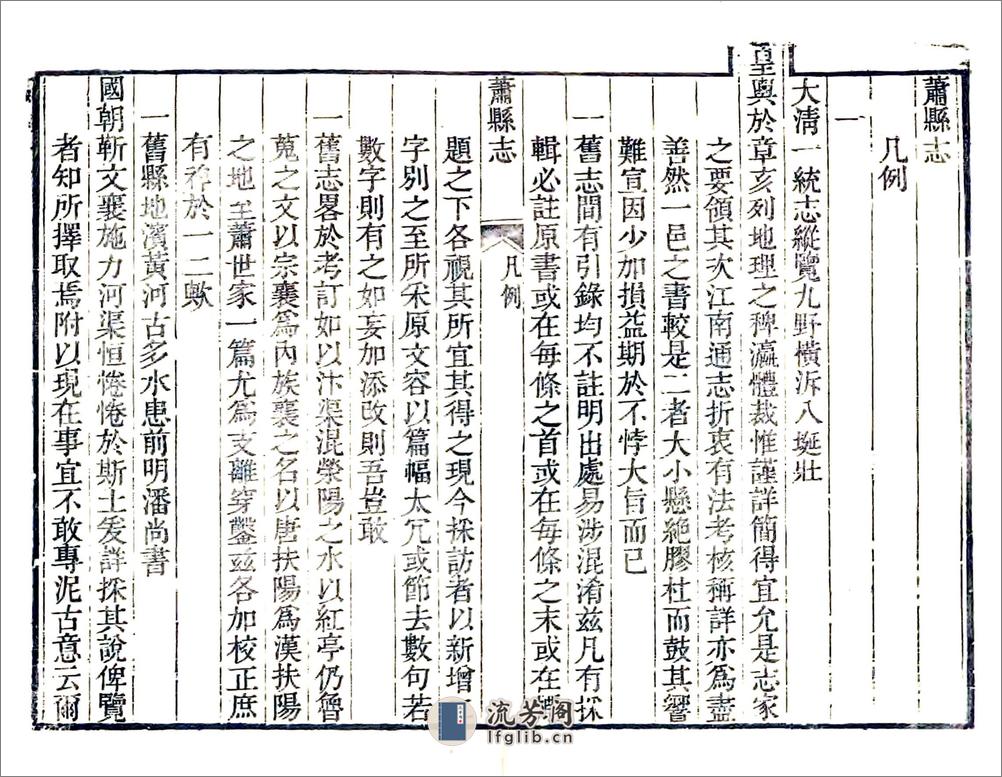 蕭縣志
凡例
一
大清一統志縱覽九野橫泝八埏壯
皇輿於章亥列地理之稗瀛體裁惟謹詳簡得宜允是志家
之要領其次江南通志折衷有法考核稱詳亦爲盡
善然一邑之書較是二者大小懸絕膠杜而鼓其響
難宣因少加損益期於不悖大旨而已
一舊志間有引錄均不註明出處易涉混淆茲凡有採
輯必註原書或在每條之首或在每條之末或在
蕭縣志 凡例
題之下各視其所宜其得之現今採訪者以新增
字別之至所采原文容以篇幅太冗或節去數句若
數字則有之如妄加添改則吾豈敢
一舊志畧於考訂如以汴渠混滎陽之水以紅亭仍魯
蒐之文以宗襄爲內族襄之名以唐扶陽爲漢扶陽
之地至蕭世家一篇尤爲支離穿鑿茲各加校正庶
有稗於一二歟
一舊縣地濱黃河古多水患前明潘尚書
國朝靳文襄施力河渠恒惓惓於斯土爰詳採其說俾覽
者知所擇取焉附以現在事宜不敢專泥古意云爾
流芳阁
lfglib.cn